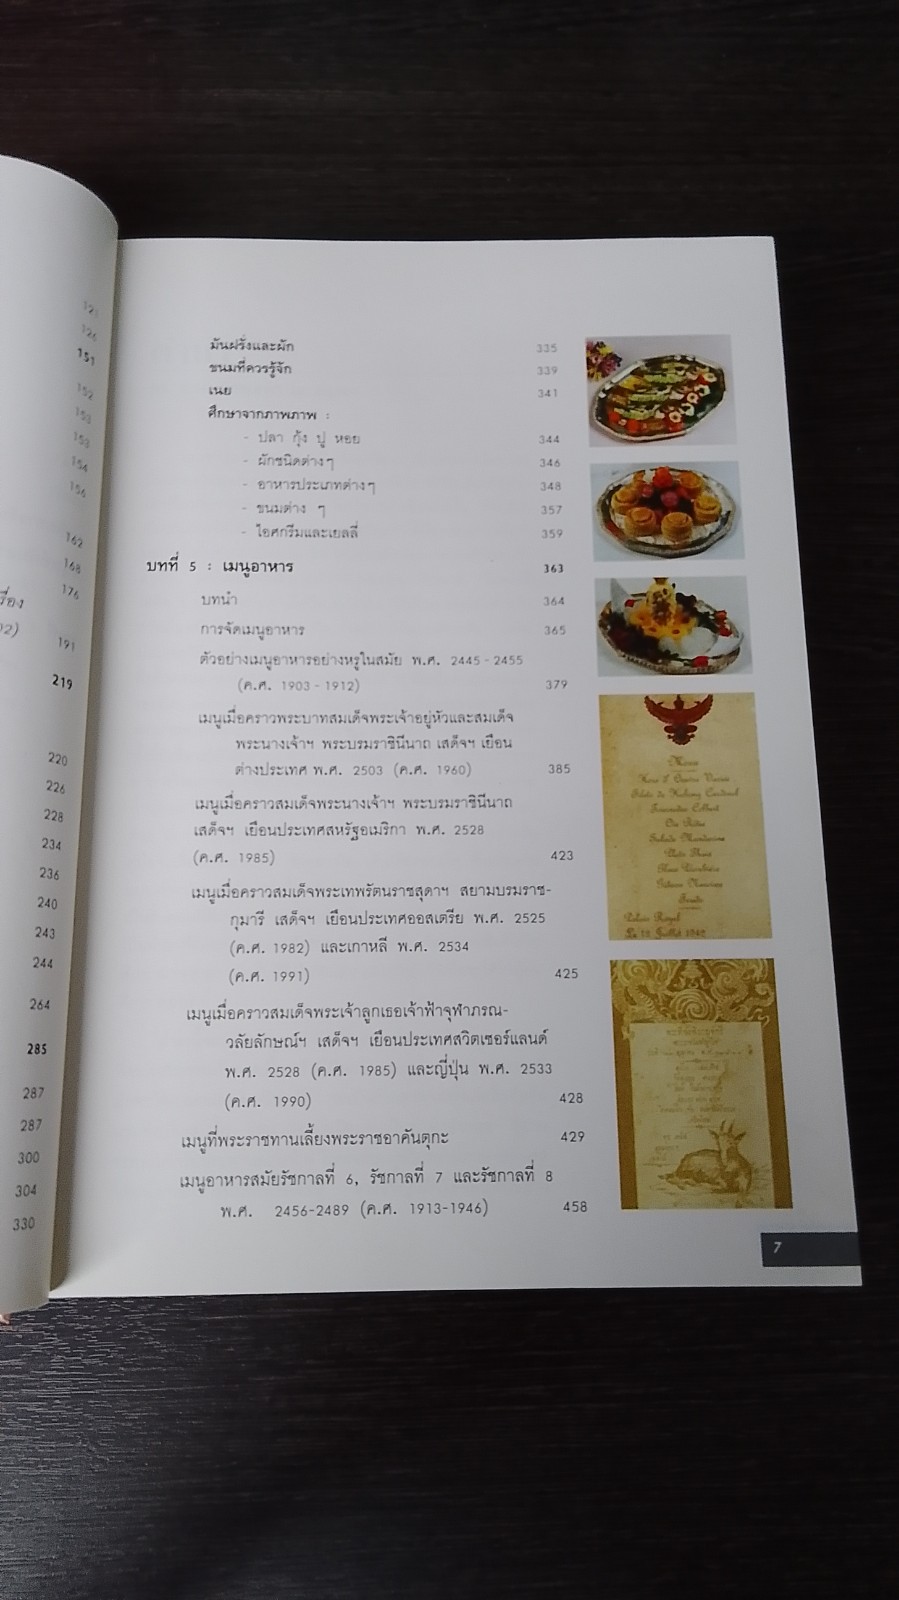 121
126
151
152
153
153
154
156
162
168
176
191
219
220
226
228
234
236
240
243
244
264
285
287
287
300
304
330
มันฝรั่งและผัก 335
ขนมที่ควรรู้จัก 339
เนย 341
ศึกษาจากภาพภาพ :
- ปลา กุ้ง ปู หอย 344
- ผักชนิดต่างๆ 346
- อาหารประเภทต่างๆ 348
- ขนมต่าง ๆ 357
- ไอศกรีมและเยลลี่ 359
บทที่ 5 : เมนูอาหาร 363
บทนำ 364
การจัดเมนูอาหาร 365
ตัวอย่างเมนูอาหารอย่างหรูในสมัย พ.ศ. 2445 - 2455
(ค.ศ. 1903 - 1912) 379
เมนูเมื่อคราวพระบาทสมเด็จพระเจ้าอยู่หัวและสมเด็จ
พระนางเจ้าฯ พระบรมราชินีนาถ เสด็จฯ เยือน
ต่างประเทศ พ.ศ. 2503 (ค.ศ. 1960) 385
เมนูเมื่อคราวสมเด็จพระนางเจ้าฯ พระบรมราชินีนาถ
เสด็จฯ เยือนประเทศสหรัฐอเมริกา พ.ศ. 2528
(ค.ศ. 1985) 423
เมนูเมื่อคราวสมเด็จพระเทพรัตนราชสุดาฯ สยามบรมราช-
กุมารี เสด็จฯ เยือนประเทศออสเตรีย พ.ศ. 2525
(ค.ศ. 1982) และเกาหลี พ.ศ. 2534
(ค.ศ. 1991) 425
เมนูเมื่อคราวสมเด็จพระเจ้าลูกเธอเจ้าฟ้าจุฬาภรณ-
วลัยลักษณ์ฯ เสด็จฯ เยือนประเทศสวิตเซอร์แลนด์
พ.ศ. 2528 (ค.ศ. 1985) และญี่ปุ่น พ.ศ. 2533
(ค.ศ. 1990) 428
เมนูที่พระราชทานเลี้ยงพระราชอาคันตุกะ 429
เมนูอาหารสมัยรัชกาลที่ 6, รัชกาลที่ 7 และรัชกาลที่ 8
พ.ศ. 2456-2489 (ค.ศ. 1913-1946) 458
Menu
Salade Mandarine
Palais Royal
7